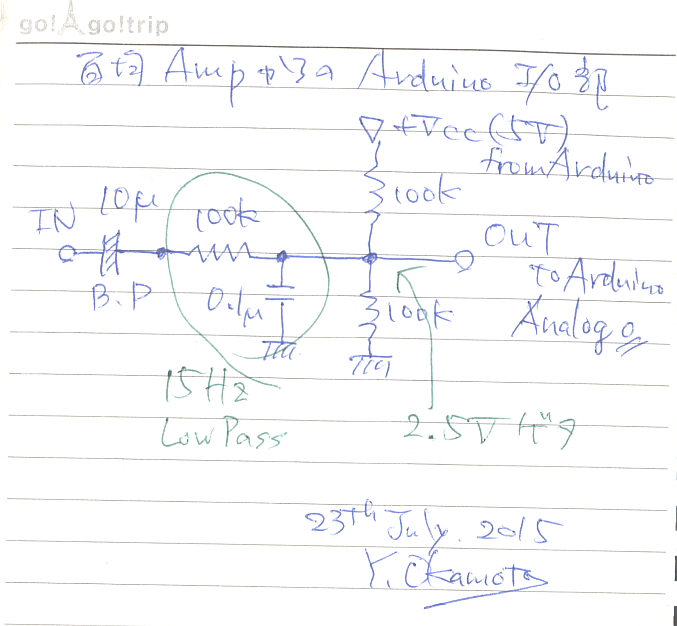 go! go!trip
Amp からの Arduino I/O 部
+Vcc (5V)
from Arduino
100k
IN
10μ
B.P
100k
0.1μ
OUT
to Arduino
Analog 0
100k
15Hz
Low Pass
2.5V
23th July. 2015
Y. Okamoto